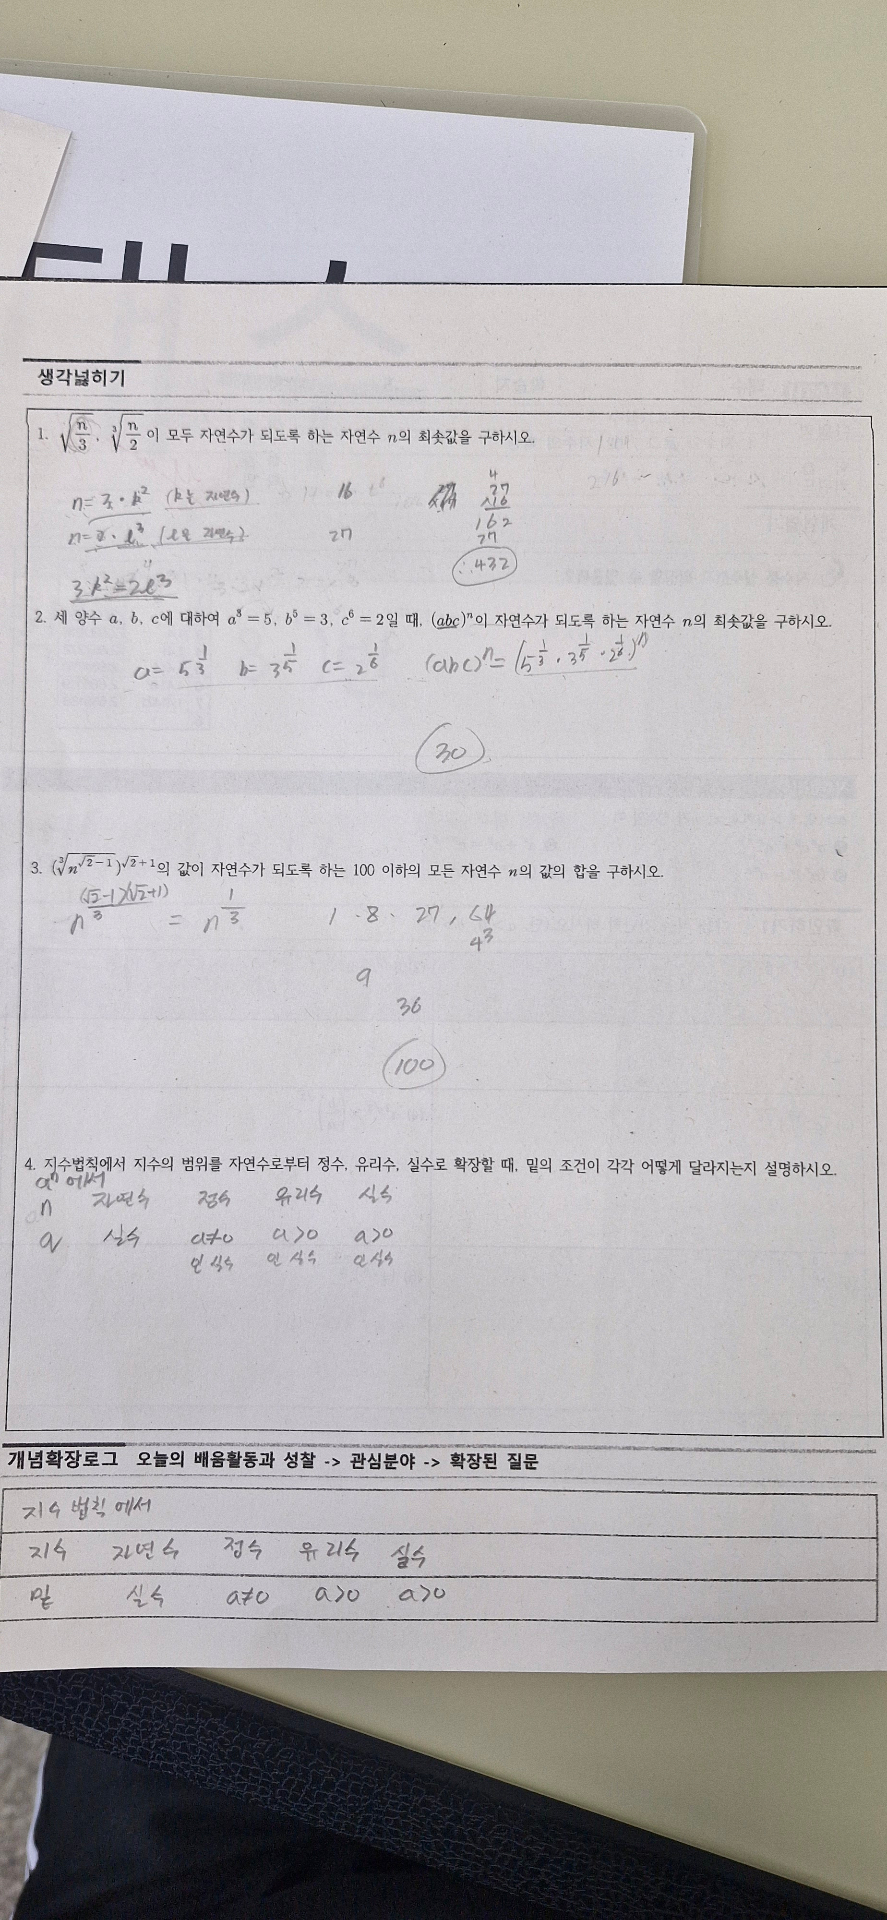 생각넓히기
1. √(n/3), ∛(n/2)이 모두 자연수가 되도록 하는 자연수 n의 최솟값을 구하시오.
n=3·k² (k는 자연수) 16
n=2·l³ (l은 자연수) 27
3k²=2l³
4
27
×16
162
27
∴432
2. 세 양수 a, b, c에 대하여 a³=5, b⁵=3, c⁶=2일 때, (abc)ⁿ이 자연수가 되도록 하는 자연수 n의 최솟값을 구하시오.
a=5^(1/3) b=3^(1/5) c=2^(1/6) (abc)ⁿ=(5^(1/3)·3^(1/5)·2^(1/6))ⁿ
30
3. (∛(n^(√2-1)))^(√2+1)의 값이 자연수가 되도록 하는 100 이하의 모든 자연수 n의 값의 합을 구하시오.
n^((√2-1)(√2+1)/3) = n^(1/3) 1 · 8 · 27, 64
4³
9
36
100
4. 지수법칙에서 지수의 범위를 자연수로부터 정수, 유리수, 실수로 확장할 때, 밑의 조건이 각각 어떻게 달라지는지 설명하시오.
aⁿ에서
n 자연수 정수 유리수 실수
a 실수 a≠0 a>0 a>0
인 실수 인 실수 인 실수
개념확장로그 오늘의 배움활동과 성찰 -> 관심분야 -> 확장된 질문
지수법칙에서
지수 자연수 정수 유리수 실수
밑 실수 a≠0 a>0 a>0